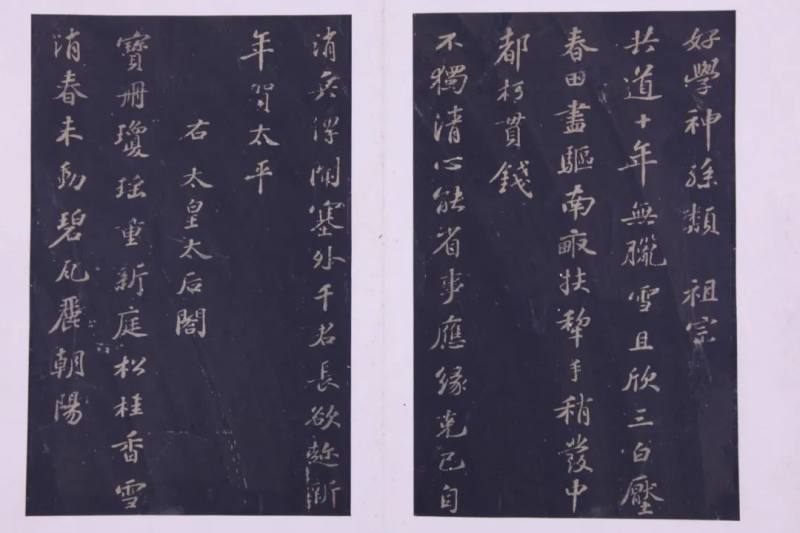 好學神孫類　祖宗
共道十年無臘雪且欣三白壓
春田盡驅南畝扶犂手稍發中
都朽貫錢
不獨清心能省事應緣克己自
消兵傳聞塞外千君長欲趂新
年賀太平
右太皇太后閤
寶冊瓊瑤重新庭松桂香雪
消春未動碧瓦麗朝陽